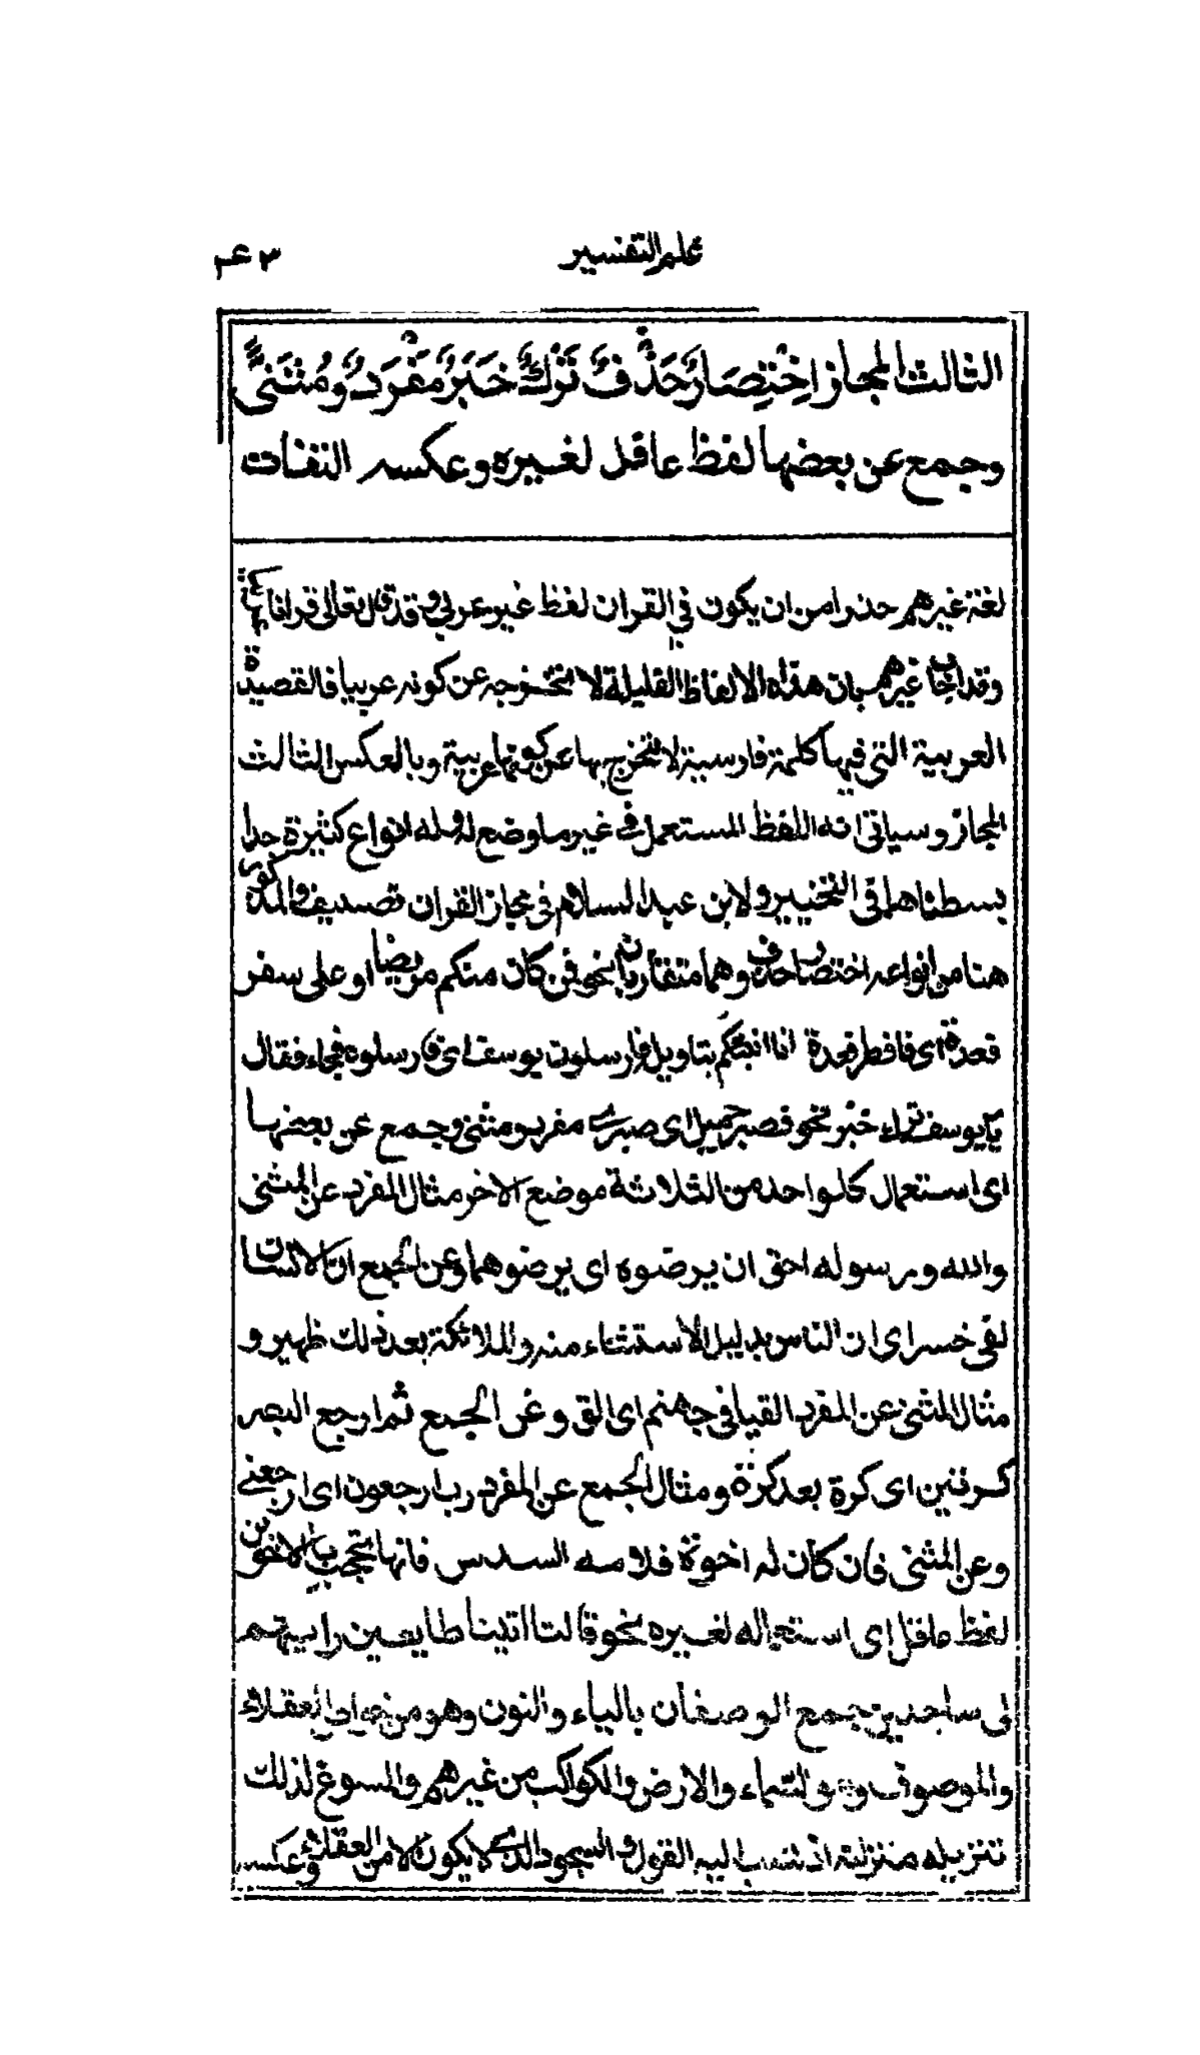 علم التفسير
٤٣
الثالث المجاز اِخْتِصَارٌ حَذْفٌ تَرْكُ خَبَرٍ مُفْرَدٌ وَمُثَنًّى
وجمع عن بعضها لفظ عاقل لغيره وعكسه التفات
لغة غيرهم حذرا من ان يكون في القران لفظ غير عربي وقد قال تعالى قرانا
وقد اجاب غيرهم بان هذه الالفاظ القليلة لا تخرجه عن كونه عربيا فالقصيدة
العربية التي فيها كلمة فارسية لا تخرج بها عن كونها عربية وبالعكس الثالث
المجاز وسياتي انه اللفظ المستعمل في غير ما وضع له وله انواع كثيرة جدا
بسطناها في التحبير ولابن عبد السلام في مجاز القران تصنيف والمذكور
هنا من انواعه اختصار حذف وهما متقاربان نحو فمن كان منكم مريضا او على سفر
فعدة اى فافطر فعدة انا انبئكم بتاويله فارسلون يوسف اى فارسلوه فجاء فقال
يا يوسف ترك خبر نحو فصبر جميل اى صبرى مفرد ومثنى وجمع عن بعضها
اى استعمال كل واحد من الثلاثة موضع الاخر مثال المفرد عن المثنى
والله ورسوله احق ان يرضوه اى يرضوهما وعن الجمع ان الانسان
لفي خسر اى ان الناس بدليل الاستثناء منه والملائكة بعد ذلك ظهير و
مثال المثنى عن المفرد القيا في جهنم اى الق وعن الجمع ثم ارجع البصر
كرتين اى كرة بعد كرة ومثال الجمع عن المفرد رب ارجعون اى ارجعني
وعن المثنى فان كان له اخوة فلامه السدس فانها تحجب بالاخوين
لفظ عاقل اى استعماله لغيره نحو قالتا اتينا طايعين رايتهم
لى ساجدين جمع الوصفان بالياء والنون وهو من خواص العقلاء
والموصوف وهو السماء والارض والكواكب من غيرهم والمسوغ لذلك
تنزيله منزلته اذ نسب اليه القول والسجود الذى لا يكون الا من العقلاء وعكسه